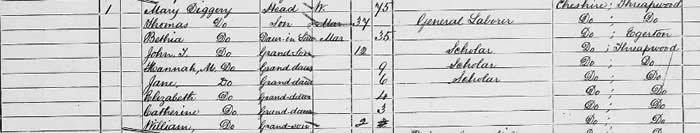 1 Mary Diggery Head W. 75 Cheshire ; Threapwood
Thomas Do Son Mar 37 General Laborer Do ; Do
Bethia Do Daur-in-Law Mar 35 Do ; Egerton
John, T. Do Grandson 12 Scholar Do ; Threapwood
Hannah, M. Do Grand-daur 9 Scholar Do ; Do
Jane, Do Grand-daur 6 Scholar Do ; Do
Elizabeth Do Grand-daur 4 Do ; Do
Catherine Do Grand-daur 3 Do ; Do
William, Do Grand-son 2 Do ; Do